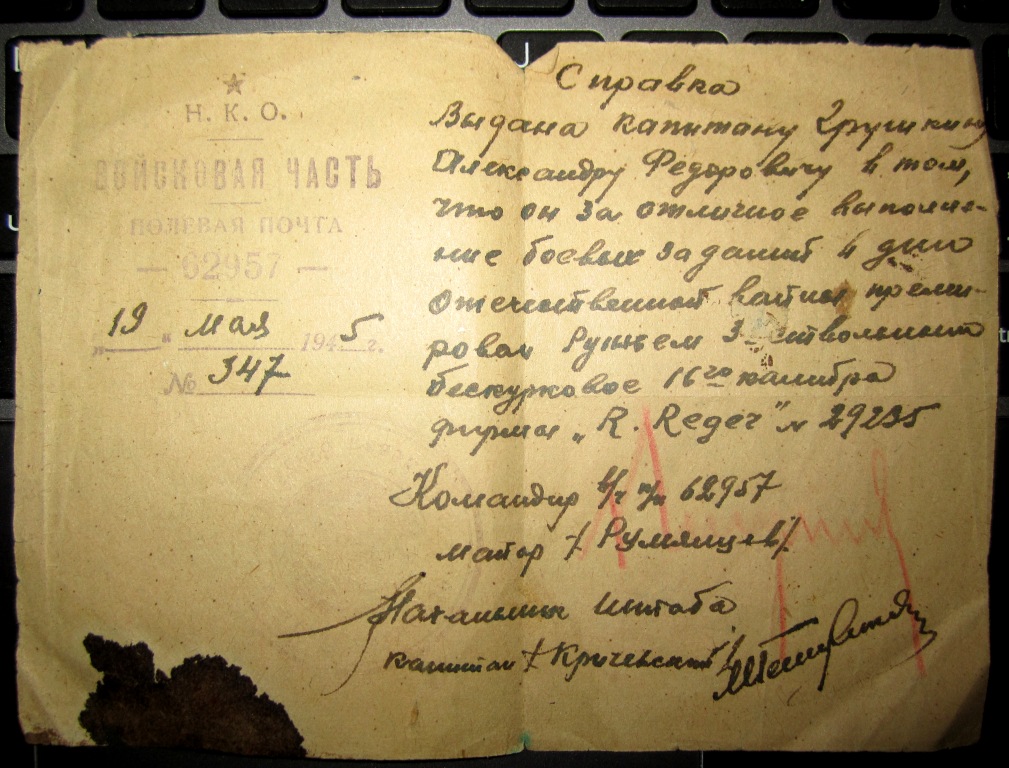 Н. К. О.
ВОЙСКОВАЯ ЧАСТЬ
ПОЛЕВАЯ ПОЧТА
— 62957 —
„19“ мая 1945 г.
№ 347
Справка
Выдана капитану Грушкину
Александру Федоровичу в том,
что он за отличное выполне-
ние боевых заданий в дни
отечественной войны преми-
рован Ружьем 3х ствольным
бескурковое 16го калибра
фирмы „R. Reger" № 29235
Командир в/ч п/п 62957
майор /Румянцев/
Начальник штаба
капитан /Кричевский/